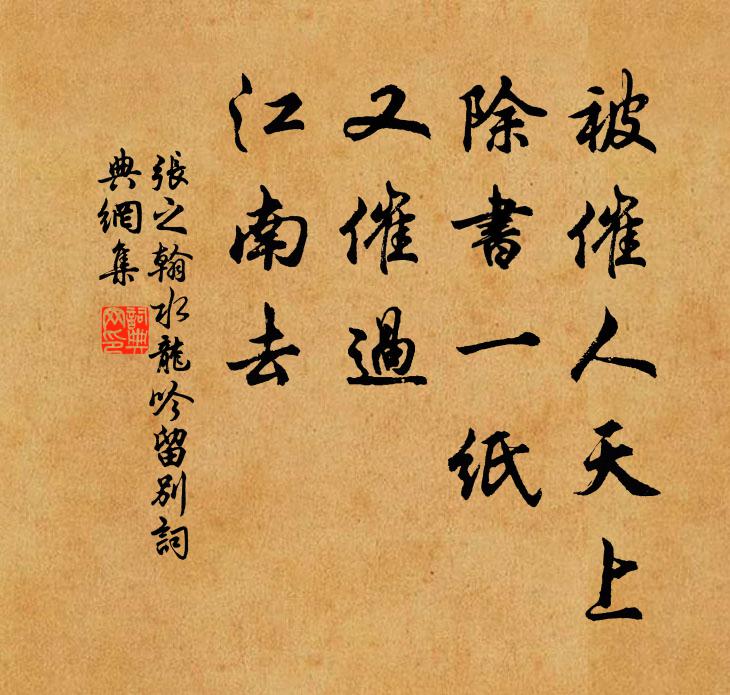 被催人天上
除書一紙
又催過
江南去
張之翰水龍吟留別詞
典網集
詞典
网印